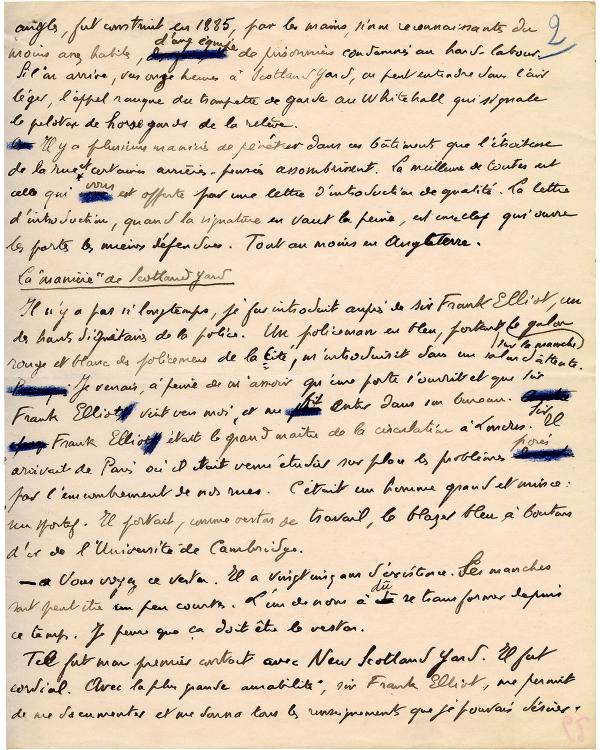 2
angles, fut construit en 1885, par les mains, sinon reconnaissantes du
moins assez habiles, d'une équipe de prisonniers condamnés au hard labour.
Si l'on arrive, vers onze heures à Scotland Yard, on peut entendre dans l'air
léger, l'appel rauque du trompette de garde au Whitehall qui signale
le peloton de horse gards de la relève.
Il y a plusieurs manières de pénétrer dans ces bâtiments que l'étroitesse
de la rue et certaines arrières-pensées assombrissent. La meilleure de toutes est
celle qui vous est offerte par une lettre d'introduction de qualité. La lettre
d'introduction, quand la signature en vaut la peine, est une clef qui ouvre
les portes les mieux défendues. Tout au moins en Angleterre.
La "manière" de Scotland Yard
Il n'y a pas si longtemps, je fus introduit auprès de sir Frank Elliot, un
des hauts dignitaires de la police. Un policeman en bleu, portant le galon
sur la manche
rouge et blanc des policemen de la Cité, m'introduisit dans un salon d'attente.
Je venais, à peine de m'asseoir qu'une porte s'ouvrit et que sir
Frank Elliot vint vers moi, et me fit entrer dans son bureau. Sir
Frank Elliot était le grand maître de la circulation à Londres. Il
arrivait de Paris où il était venu étudier sur place les problèmes posés
par l'encombrement de nos rues. C'était un homme grand et mince :
un sportif. Il portait, comme veston de travail, le blazer bleu à boutons
d'or de l'Université de Cambridge.
— Vous voyez ce veston. Il a vingt cinq ans d'existence. Les manches
sont peut être un peu courtes. L'un de nous à dû se transformer depuis
ce temps. Je pense que ça doit être le veston.
Tel fut mon premier contact avec New Scotland Yard. Il fut
cordial. Avec la plus grande amabilité, sir Frank Elliot, me permit
de me documenter et me donna tous les renseignements que je pouvais désirer.